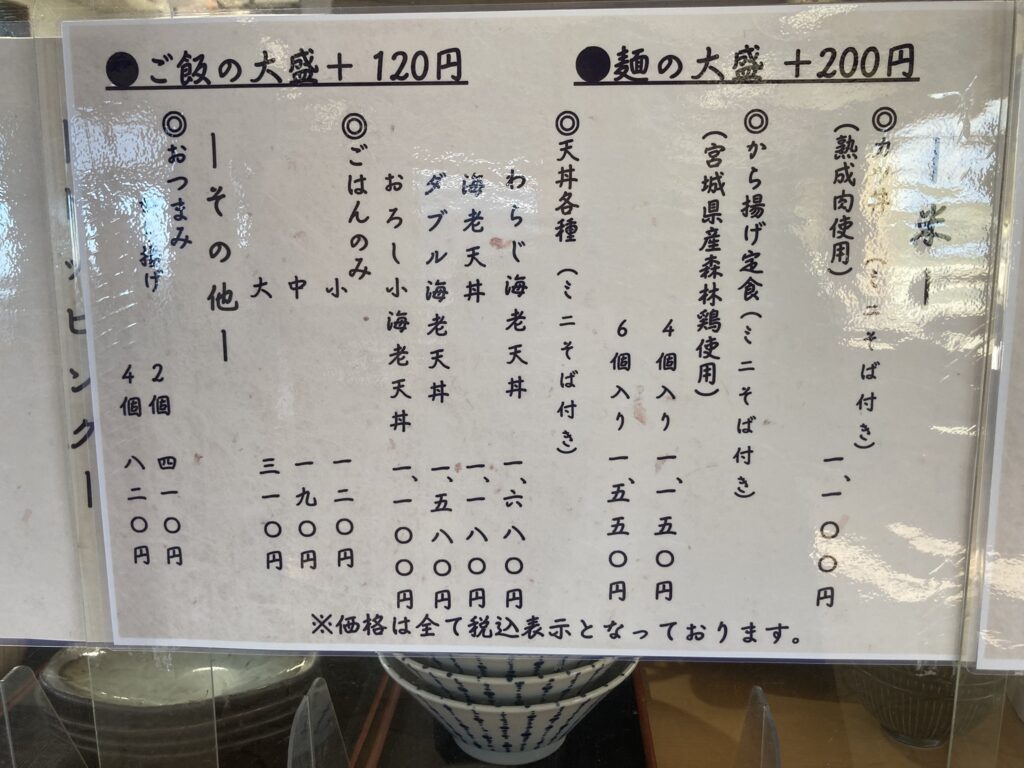 ●ご飯の大盛＋ 120円
●麺の大盛 ＋200円
―米―
◎カツ丼（ミニそば付き）
（熟成肉使用）
一、一〇〇円
◎から揚げ定食（ミニそば付き）
（宮城県産森林鶏使用）
4個入り 一、一五〇円
6個入り 一、五五〇円
◎天丼各種（ミニそば付き）
わらじ海老天丼 一、六八〇円
海老天丼 一、一八〇円
ダブル海老天丼 一、五八〇円
おろし小海老天丼 一、一〇〇円
◎ごはんのみ
小 一二〇円
中 一九〇円
大 三一〇円
―その他―
◎おつまみ
揚げ 2個 四一〇円
4個 八二〇円
※価格は全て税込表示となっております。
―トッピング―